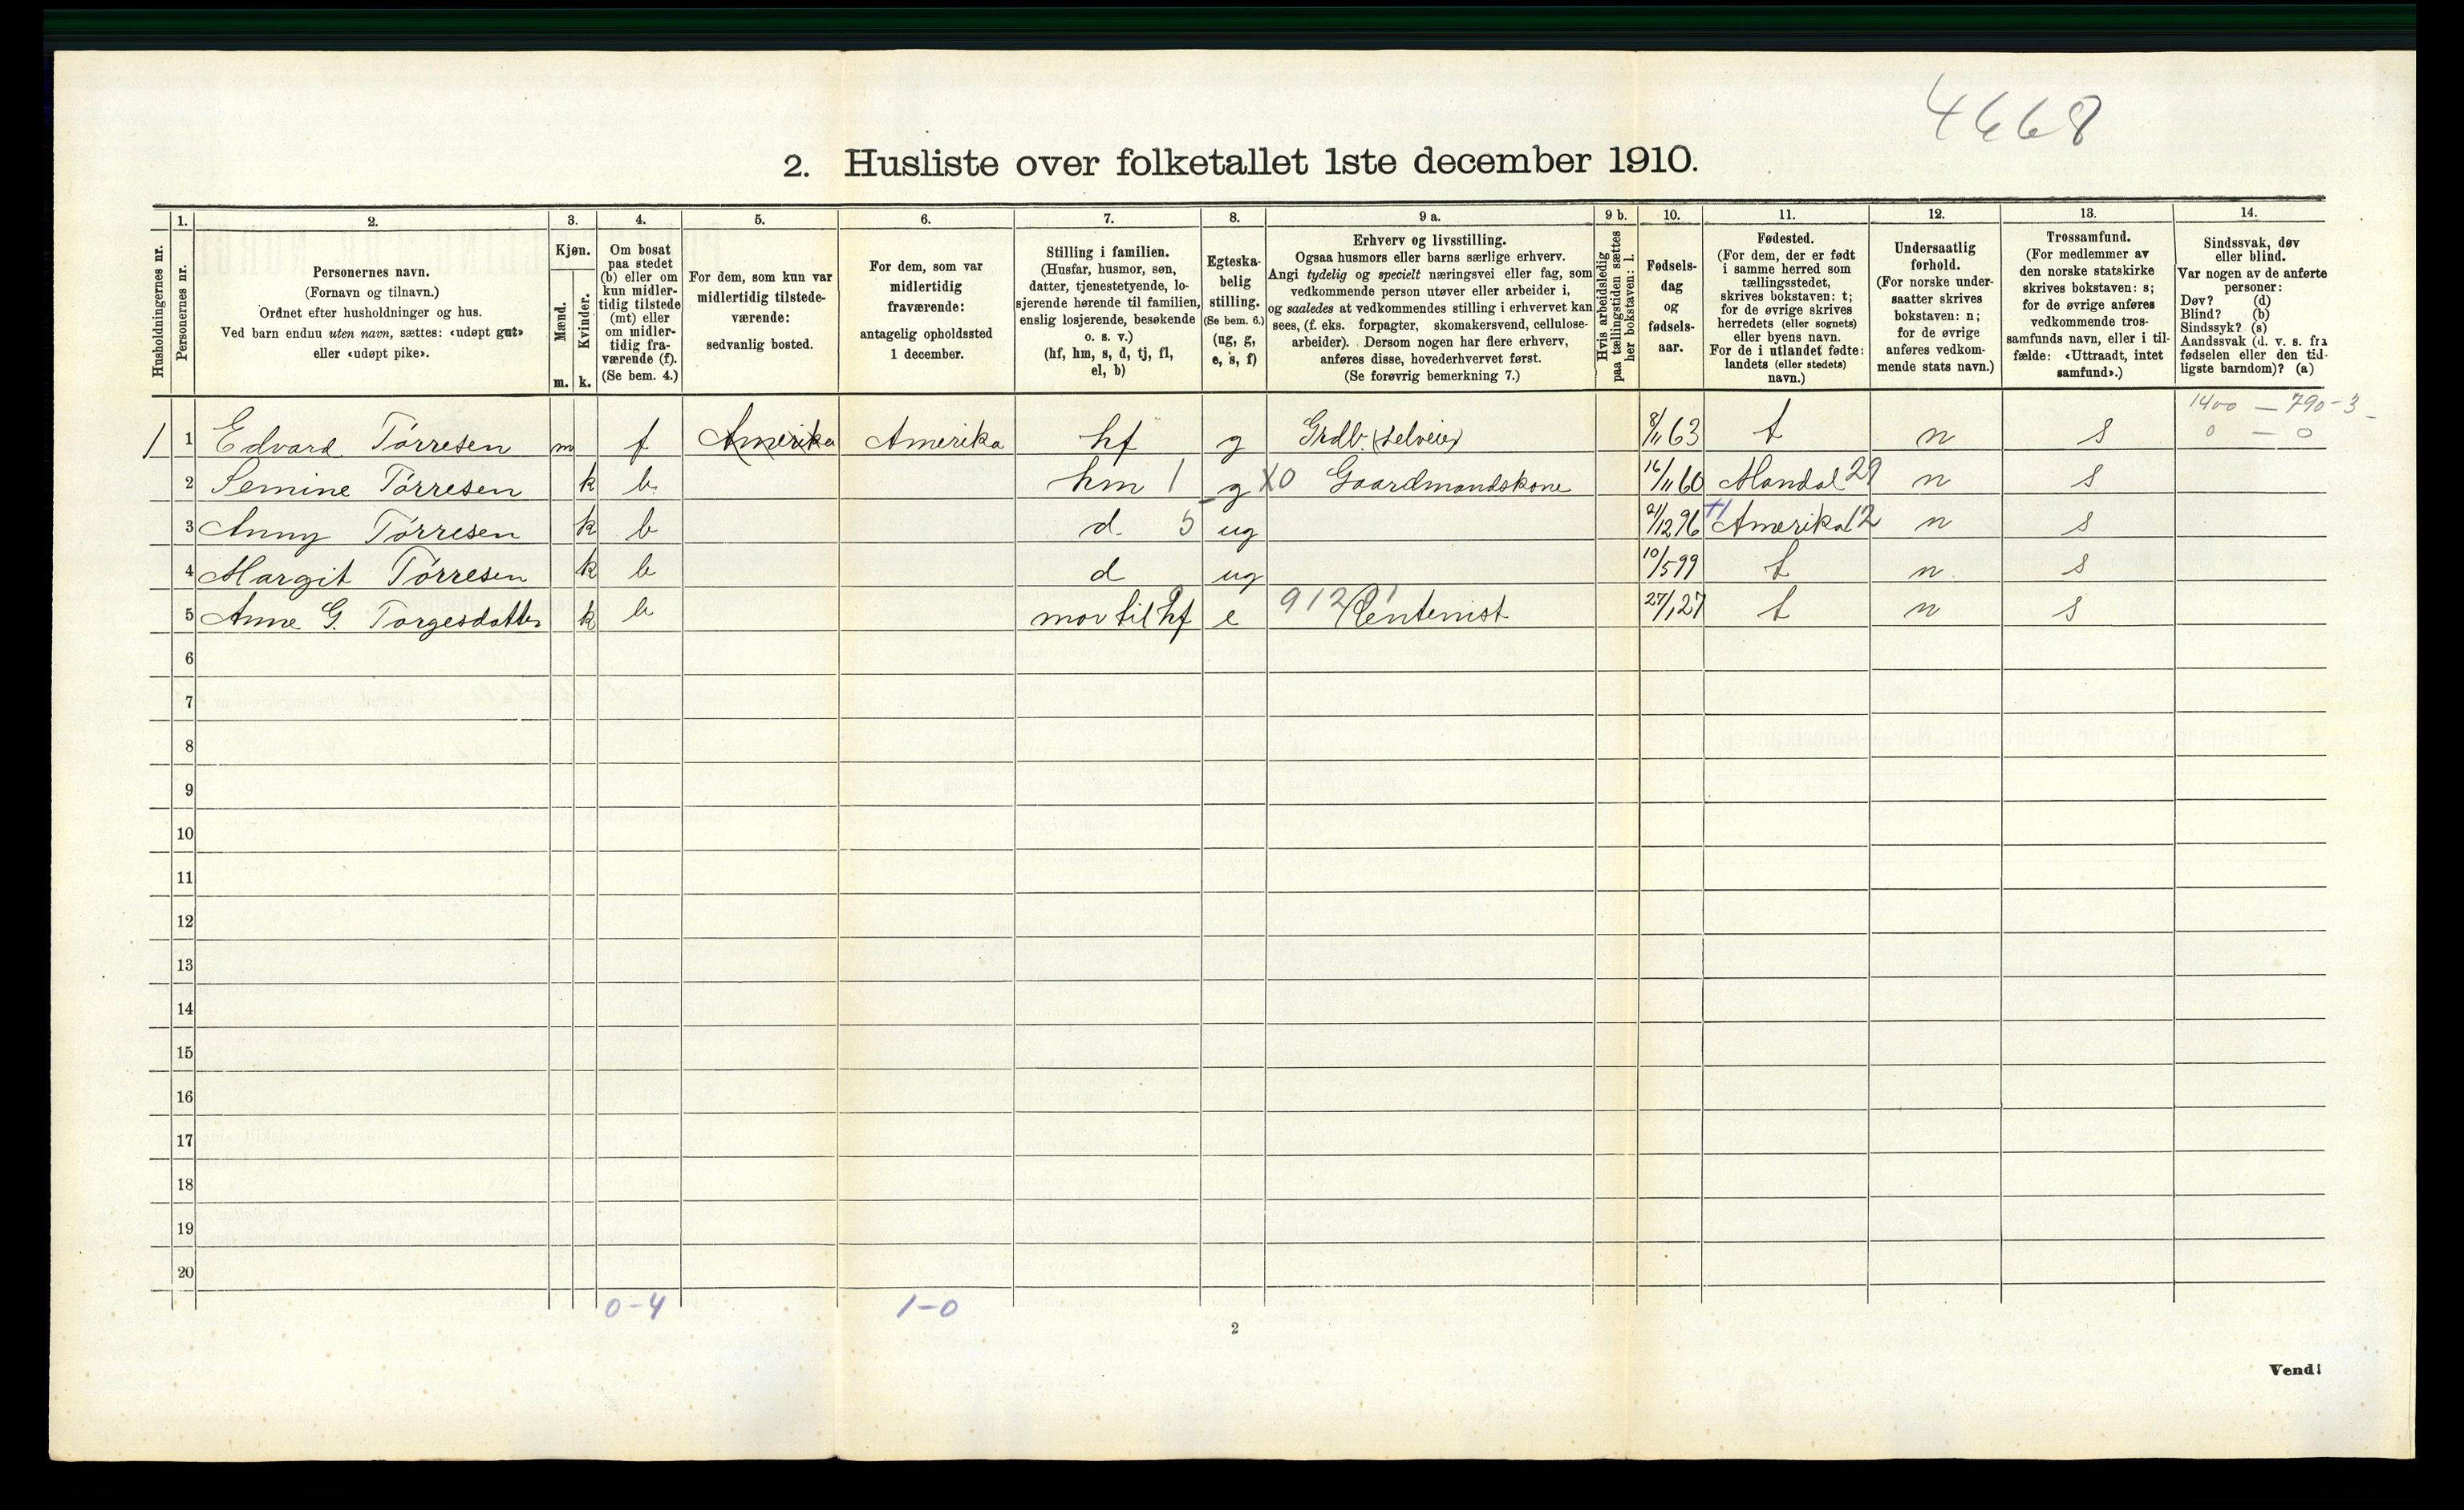 4668
2. Husliste over folketallet 1ste december 1910.
Husholdningernes nr.
1. Personernes nr.
2. Personernes navn. (Fornavn og tilnavn.) Ordnet efter husholdninger og hus. Ved barn endnu uten navn, sættes: «udøpt gut» eller «udøpt pike».
3. Kjøn. Mænd. m. Kvinder. k.
4. Om bosat paa stedet (b) eller om kun midlertidig tilstede (mt) eller om midlertidig fraværende (f). (Se bem. 4.)
5. For dem, som kun var midlertidig tilstedeværende: sedvanlig bosted.
6. For dem, som var midlertidig fraværende: antagelig opholdssted 1 december.
7. Stilling i familien. (Husfar, husmor, søn, datter, tjenestetyende, losjerende hørende til familien, enslig losjerende, besøkende o. s. v.) (hf, hm, s, d, tj, fl, el, b)
8. Egteskabelig stilling. (Se bem. 6.) (ug, g, e, s, f)
9 a. Erhverv og livsstilling. Ogsaa husmors eller barns særlige erhverv. Angi tydelig og specielt næringsvei eller fag, som vedkommende person utøver eller arbeider i, og saaledes at vedkommendes stilling i erhvervet kan sees, (f. eks. forpagter, skomakersvend, cellulosearbeider). Dersom nogen har flere erhverv, anføres disse, hovederhvervet først. (Se forøvrig bemerkning 7.)
9 b. Hvis arbeidsledig paa tællingstiden sættes her bokstaven: l.
10. Fødselsdag og fødselsaar.
11. Fødested. (For dem, der er født i samme herred som tællingsstedet, skrives bokstaven: t; for de øvrige skrives herredets (eller sognets) eller byens navn. For de i utlandet fødte: landets (eller stedets) navn.)
12. Undersaatlig forhold. (For norske undersaatter skrives bokstaven: n; for de øvrige anføres vedkommende stats navn.)
13. Trossamfund. (For medlemmer av den norske statskirke skrives bokstaven: s; for de øvrige anføres vedkommende trossamfunds navn, eller i tilfælde: «Uttraadt, intet samfund».)
14. Sindssvak, døv eller blind. Var nogen av de anførte personer: Døv? (d) Blind? (b) Sindssyk? (s) Aandssvak (d. v. s. fra fødselen eller den tidligste barndom)? (a)
1400 — 790-3
0 — 0
1 1 Edvard Tørresen m f Amerika Amerika hf g Grdb. (selveier) 8/11 63 t n s
2 Semine Tørresen k b hm 1 g X0 Gaardmandskone 16/11 60 Mandal 29 n s
3 Anny Tørresen k b d. 5 ug 21/12 96 Amerika 12 n s
4 Margit Tørresen k b d ug 10/5 99 t n s
5 Anne G. Torgesdatter k b mor til hf e 912 Rentenist 27/1 27 t n s
6
7
8
9
10
11
12
13
14
15
16
17
18
19
20
0-4 1-0
2
Vend!